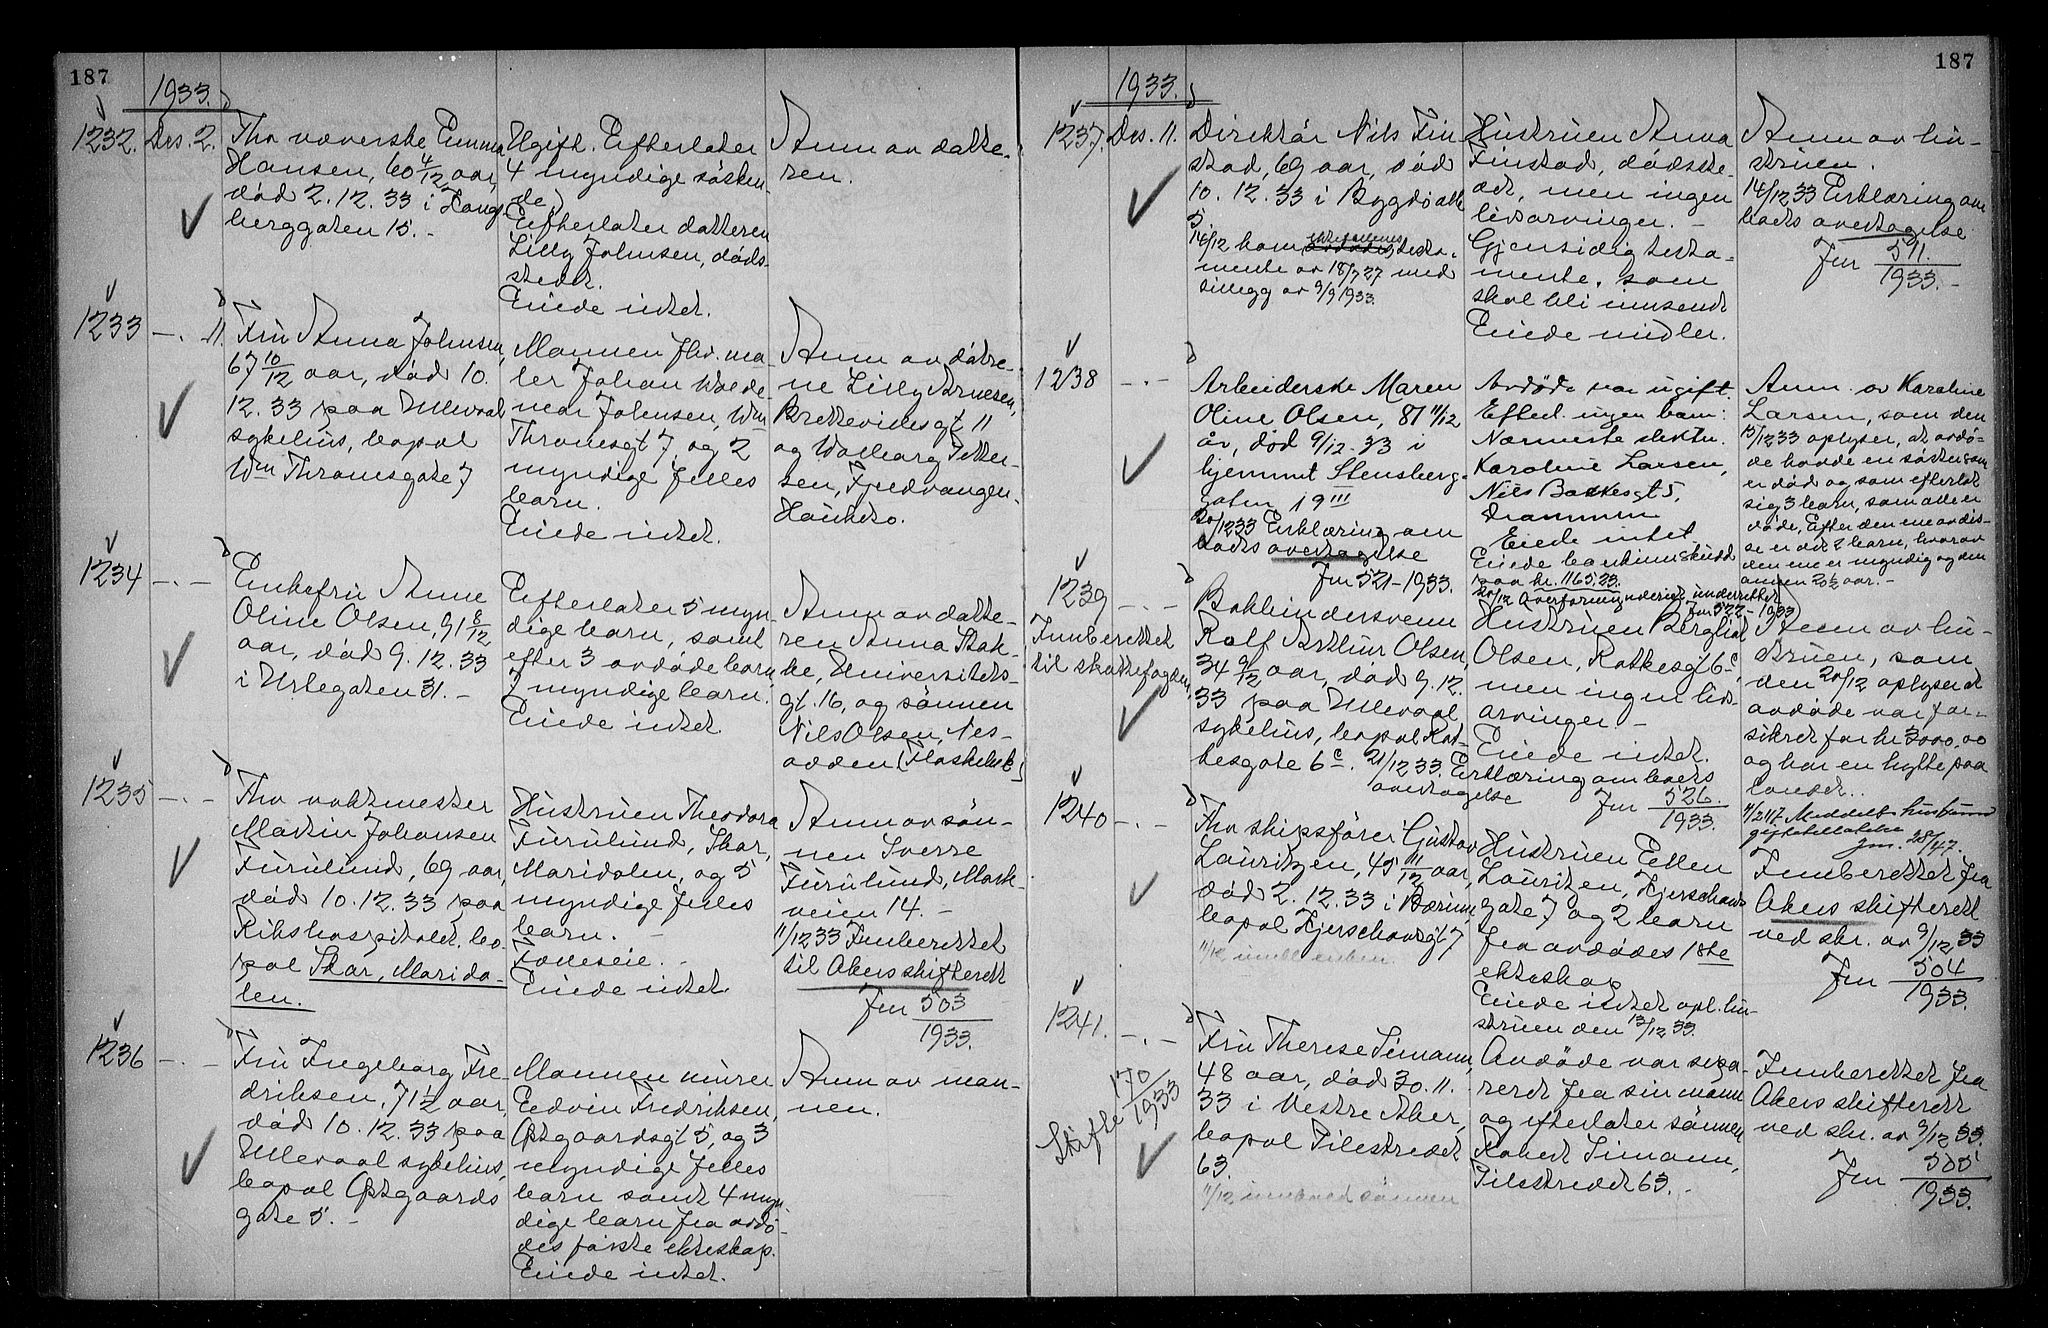 187
1933.
1232. Des. 2. Fhv væverske Emma
Hansen, 60 4/12 aar,
død 2.12.33 i Lang-
berggaten 15. -
Ugift. Efterlater
4 myndige søsken-
de
Efterlater datteren
Lilly Johnsen, døds-
stedet.
Eiede intet.
Anm av datte-
ren.
1233 -.- 11. Fru Anna Johnsen,
67 10/12 aar, død 10.
12.33 paa Ullevaal
sykehus, bopæl
Wm Thranesgate 7
Mannen fhv. ma-
ler Johan Walde-
mar Johnsen, Wm
Thranesgt 7, og 2
myndige felles
barn.
Eiede intet.
Anm av døtre-
ne Lilly Arnesen,
Brettevilles gt 11
og Valborg Petter-
sen, Fjeldvangen,
Hauketo.
1234 -.- Enkefru Anne
Oline Olsen, 91 8/12
aar, død 9.12.33
i Urtegaten 31. -
Efterlater 5 myn-
dige barn, samt
efter 3 avdøde barn
7 myndige barn.
Eiede intet
Anm av datte-
ren Anna Bak-
ke, Universitets-
gt. 16, og sønnen
Nils Olsen, Nes-
odden (Flaskebek)
1235 -.- Fhv vaktmester
Martin Johansen
Furulund, 69 aar,
død 10.12.33 paa
Rikshospitalet, bo-
pæl Skar, Marida-
len.
Hustruen Theodora
Furulund, Skar,
Maridalen, og 5
myndige felles
barn. -
Fælleseie. -
Eiede intet.
Anm av søn-
nen Sverre
Furulund, Mark-
veien 14. -
11/12 33 Innberettet
til Akers skifterett
Jnr 503
1933.
1236 -.- Fru Ingeborg Fre-
driksen, 71 1/2 aar,
død 10.12.33 paa
Ullevaal sykehus,
bopæl Østgaards
gate 5. -
Mannen murer
Edvin Fredriksen,
Østgaardsgt 5, og 3
myndige felles
barn samt 4 myn-
dige barn fra avdø-
des første ekteskap.
Eiede intet.
Anm av man-
nen.
187
1933.
1237. Des. 11. Direktør Nils Fin
stad, 69 aar, død
10.12.33 i Bygdø alle
5.
14/12 kom ektefellenes testa-
mente av 18/7 27 med
tillegg av 9/9 1933.
Hustruen Anna
Finstad, dødsste-
det, men ingen
livsarvinger. -
Gjensidig testa-
mente, som
skal bli innsendt
Eiede midler.
Anm av hu-
struen.
14/12 33 Erklæring om
boets overtagelse
Jnr 511.
1933. -
1238 -.- Arbeiderske Maren
Oline Olsen, 87 11/12
år, død 9/12.33 i
hjemmet Stensberg-
gaten 19 III
20/12 33 Erklæring om
boets overtagelse
Jnr 521-1933.
Avdøde var ugift.
Efterl. ingen barn.
Nærmeste slektn.
Karoline Larsen,
Nils Bakkesgt 5,
Drammen
Eiede intet.
Eiede bankinnskudd
paa kr. 1165.23.
Jnr 522-1933
Anm. av Karoline
Larsen, som den
15/12 33 oplyser, at avdø-
de havde en søster som
er død og som efterlot
sig 3 barn, som alle er
døde. Efter den ene av dis-
se er det 2 barn, hvorav
den ene er myndig og den
annen 20 1/2 aar. -
1239 -.- Bokbindersvenn
Rolf Arthur Olsen,
34 9/12 aar, død 9.12.
33 paa Ullevaal
sykehus, bopæl Rat-
kesgate 6 c. 21/12 33. Erklæring om boets
overtagelse Jnr 526.
1933.
Innberettet
til skattefogden
Hustruen Bergliot
Olsen, Ratkesgt 6 c,
men ingen livs-
arvinger. -
Eiede intet.
Anm av hu-
struen, som
den 20/12 oplyser at
avdøde var for-
sikret for kr 3000,00
og har en hytte paa
landet.
1240 -.- Fhv skipsfører Gustav
Lauritzen, 45 11/12 aar,
død 2.12.33 i Bærum,
bopæl Kjerschowsgt 7
Hustruen Ellen
Lauritzen, Kjerschows
gate 7 og 2 barn
fra avdødes 1ste
ekteskap
Eiede intet opl. hu-
struen den 13/12 33.
Innberettet fra
Akers skifterett
ved skr. av 9/12 33
Jnr 504
1933.
1241. -.- Fru Therese Simann,
48 aar, død 30.11.
33 i Vestre Aker,
bopæl Pilestredet
63.
Skifte 170
1933
Avdøde var sepa-
rert fra sin mann
og efterlater sønnen
Robert Simann,
Pilestredet 63. -
Innberettet fra
Akers skifterett
ved skr. av 9/12 33.
Jnr 505
1933.